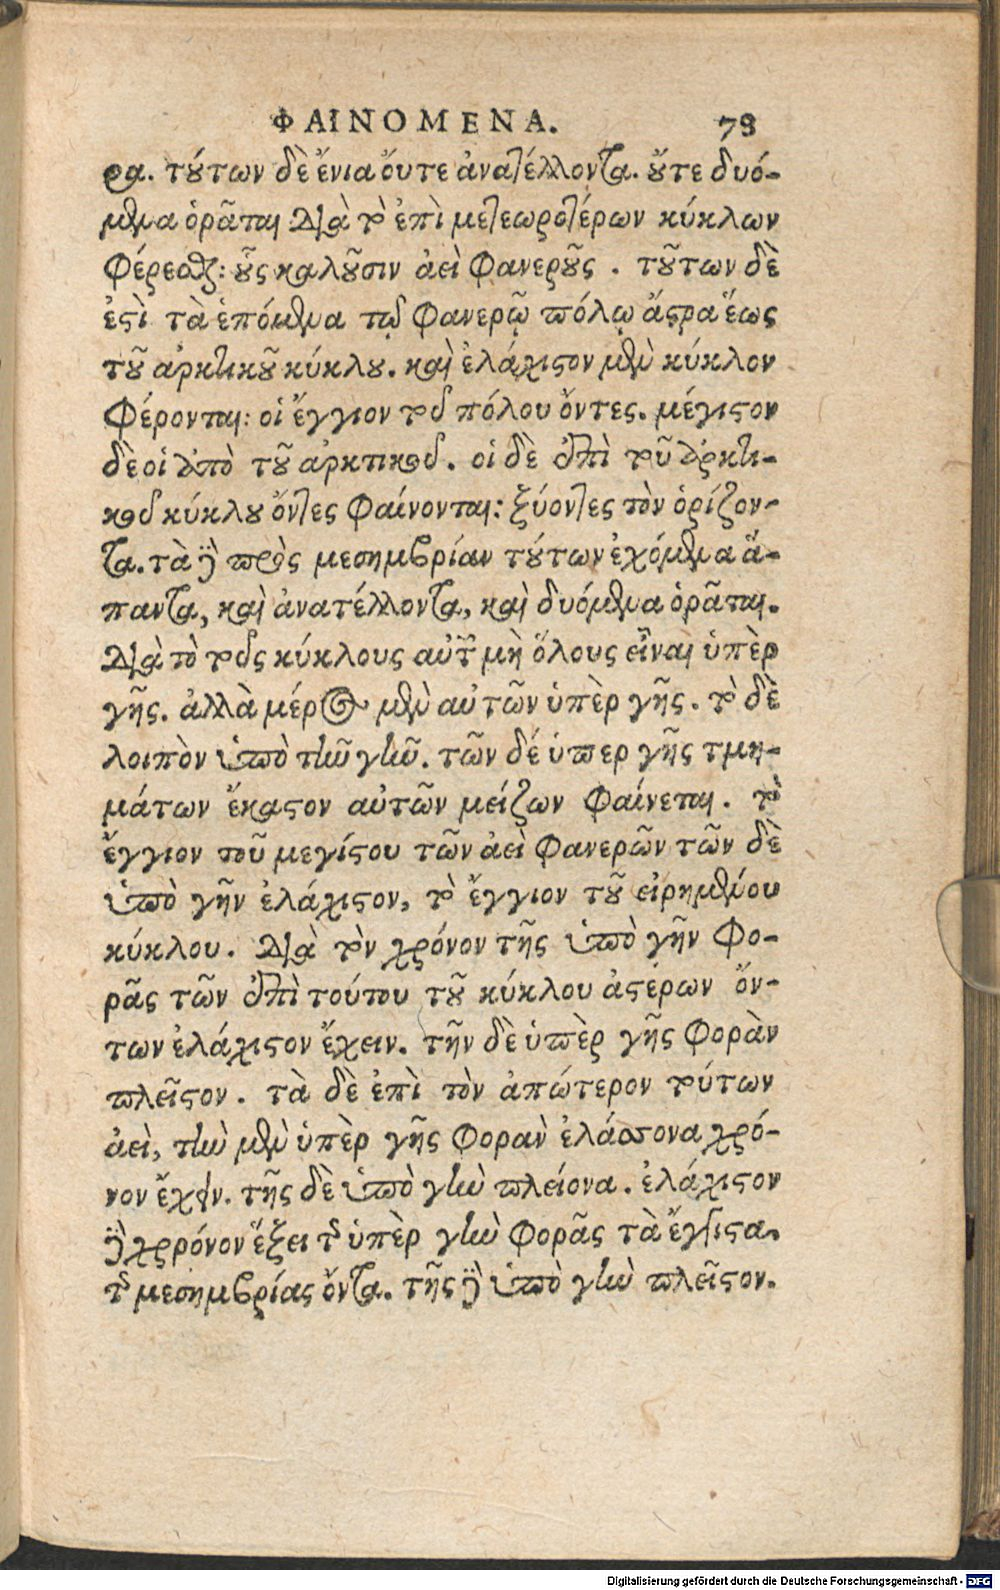 ΦΑΙΝΟΜΕΝΑ. 79
ρα. τούτων δὲ ἔνια ὄυτε ἀνατέλλοντα. ὄυτε δυό-
μενα ὁρᾶται διὰ τὸ ἐπὶ μετεωροτέρων κύκλων
φέρεσθαι: οὓς καλοῦσιν ἀεὶ φανεροῦς. τοῦτων δὲ
ἐστὶ τὰ ἑπόμενα τῷ φανερῷ πόλῳ ἄστρα ἕως
τοῦ ἀρκτικοῦ κύκλου. καὶ ἐλάχιστον μὲν κύκλον
φέρονται: οἱ ἔγγιον τοῦ πόλου ὄντες. μέγιστον
δὲ οἱ ἀπὸ τοῦ ἀρκτικοῦ. οἱ δὲ ἐπὶ τοῦ ἀρκτι-
κοῦ κύκλου ὄντες φαίνονται: ξύοντες τὸν ὁρίζον-
τα. τὰ δὲ πρὸς μεσημβρίαν τούτων ἐχόμενα ἅ-
παντα, καὶ ἀνατέλλοντα, καὶ δυόμενα ὁρᾶται.
διὰ τὸ τοὺς κύκλους αὐτῶν μὴ ὅλους εἶναι ὑπὲρ
γῆς. ἀλλὰ μέρος μὲν αὐτῶν ὑπὲρ γῆς. τὸ δὲ
λοιπὸν ὑπὸ τὴν γῆν. τῶν δέ ὑπερ γῆς τμη-
μάτων ἕκαστον αὐτῶν μείζων φαίνεται. τὸ
ἔγγιον τοῦ μεγίστου τῶν ἀεὶ φανερῶν τῶν δὲ
ὑπὸ γῆν ἐλάχιστον, τὸ ἔγγιον τοῦ εἰρημένου
κύκλου. διὰ τὸν χρόνον τῆς ὑπὸ γῆν φο-
ρᾶς τῶν ἐπὶ τούτου τοῦ κύκλου ἀστέρων ὄν-
των ἐλάχιστον ἔχειν. τῆν δὲ ὑπὲρ γῆς φορὰν
πλεῖστον. τὰ δὲ ἐπὶ τὸν ἀπώτερον τούτων
ἀεὶ, τὴν μὲν ὑπὲρ γῆς φορὰν ἐλάσσονα χρό-
νον ἔχειν. τῆς δὲ ὑπὸ γὴν πλείονα. ἐλάχιστον
δὲ χρρόνον ἕξει τῆς ὑπὲρ γὴν φορᾶς τὰ ἔγγιστα.
τῆς μεσημβρίας ὄντα. τῆς δὲ ὑπὸ γὴν πλεῖστον.
Digitalisierung gefördert durch die Deutsche Forschungsgemeinschaft - DFG